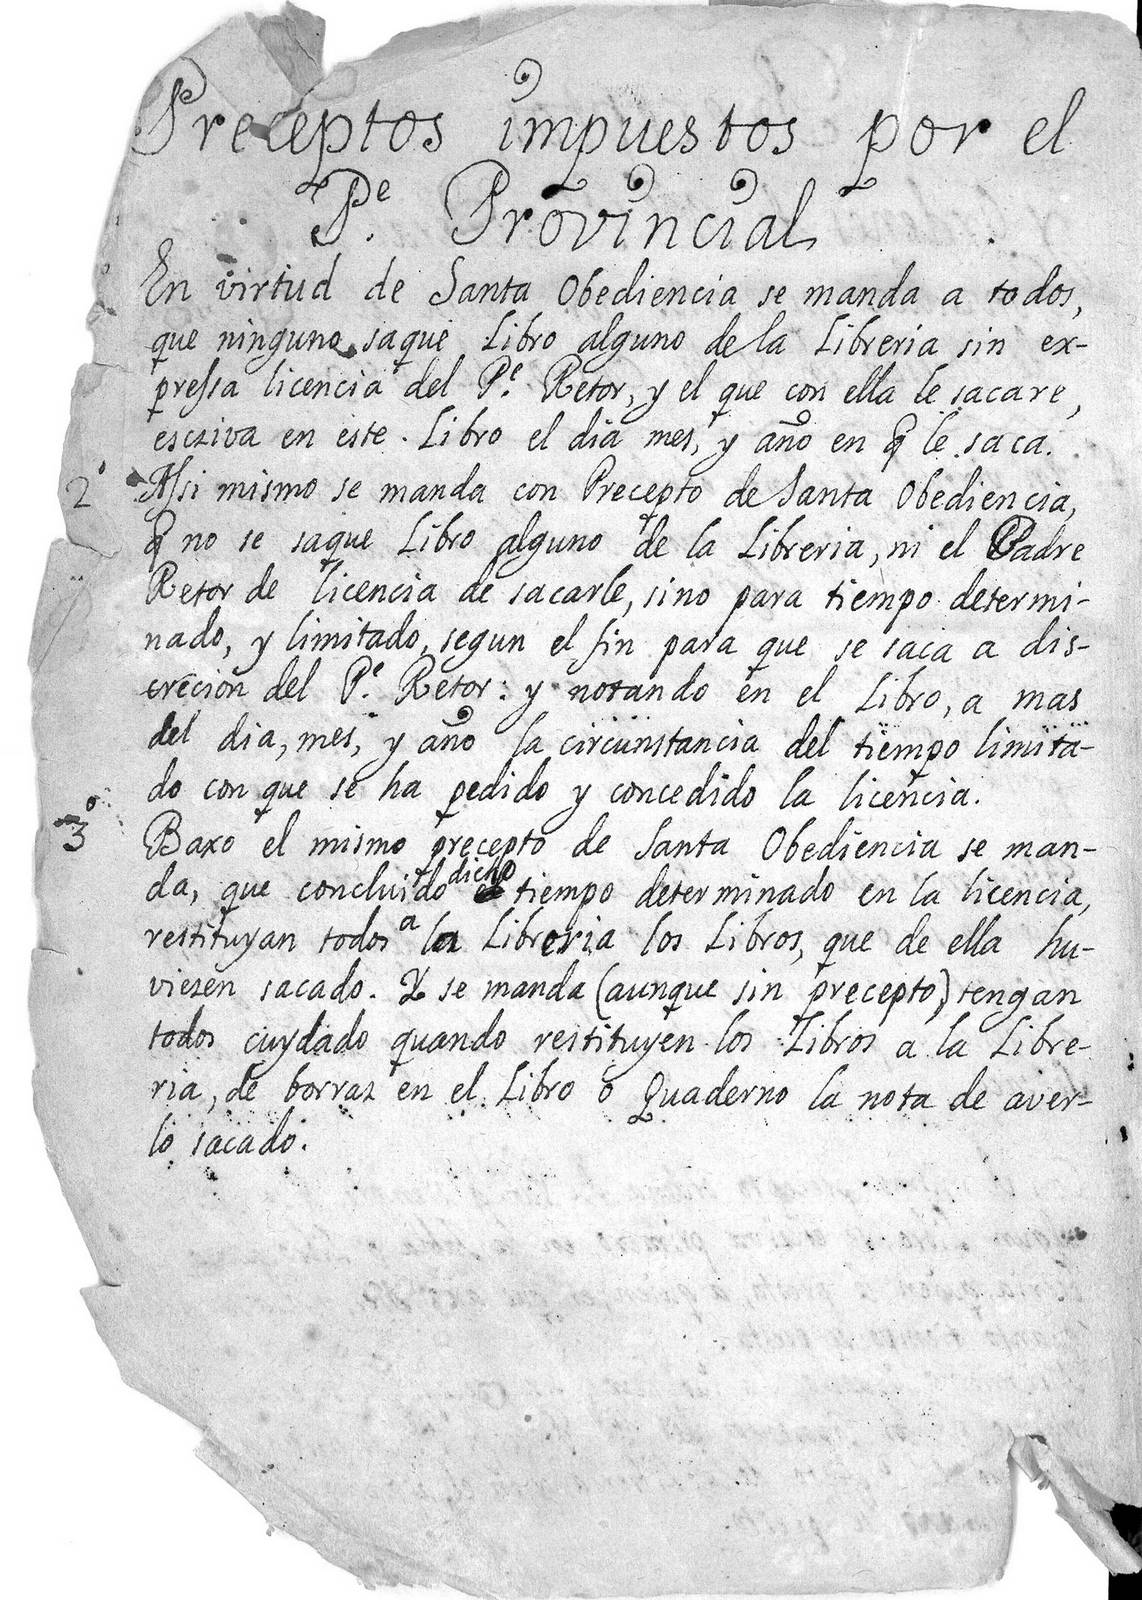 Preceptos impuestos por el
Pe. Provincial
En virtud de Santa Obediencia se manda a todos,
que ninguno saque Libro alguno de la Libreria sin ex-
pressa licencia del Pe. Retor, y el que con ella le sacare,
escriva en este Libro el dia mes, y año en q̃ le saca.
2o Assi mismo se manda con Precepto de Santa Obediencia,
q̃ no se saque Libro alguno de la Libreria, ni el Padre
Retor de licencia de sacarle, sino para tiempo determi-
nado, y limitado, segun el fin para que se saca a dis-
crecion del Pe. Retor: y notando en el Libro, a mas
del dia, mes, y año la circunstancia del tiempo limita-
do con que se ha pedido y concedido la licencia.
3o Baxo el mismo precepto de Santa Obediencia se man-
da, que concluido dicho tiempo determinado en la licencia,
restituyan todos a la Libreria los Libros, que de ella hu-
viezen sacado. Y se manda (aunque sin precepto) tengan
todos cuydado quando restituyen los Libros a la Libre-
ria, de borrar en el Libro o Quaderno la nota de aver-
lo sacado.